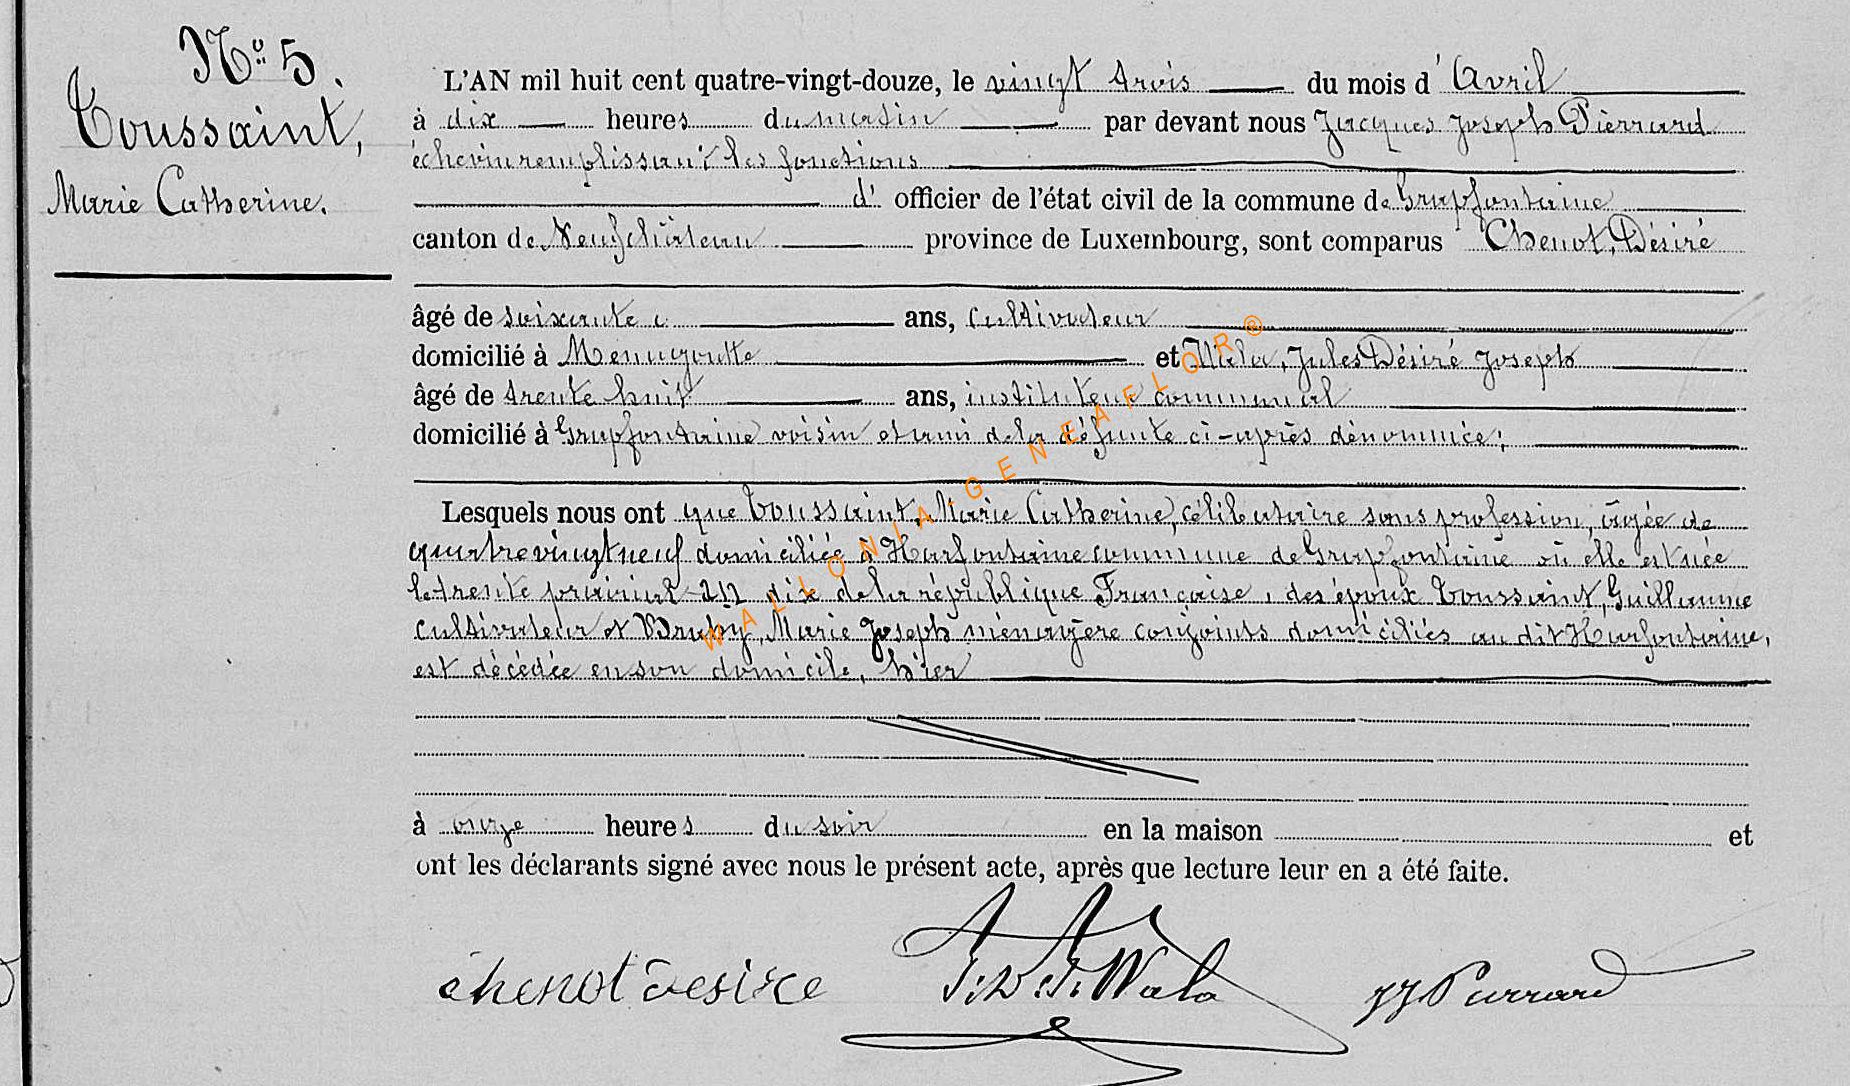 N° 5.
Toussaint,
Marie Catherine.
L'AN mil huit cent quatre-vingt-douze, le vingt trois du mois d'Avril
à dix heures du matin par devant nous Jacques Joseph Pierrard
échevin remplissant les fonctions
d' officier de l'état civil de la commune de Grapfontaine
canton de Neufchâteau province de Luxembourg, sont comparus Chenot, Désiré
âgé de soixante ans, cultivateur
domicilié à Menugoutte et Wala, Jules Désiré Joseph
âgé de trente huit ans, instituteur communal
domicilié à Grapfontaine voisin et ami de la défunte ci-après dénommée;
Lesquels nous ont que Toussaint, Marie Catherine, célibataire sans profession, âgée de
quatre vingt neuf domiciliée à Harfontaine commune de Grapfontaine où elle est née
le trente prairial an dix de la république Française, des époux Toussaint, Guillaume
cultivateur et Marie Joseph ménagère conjoints domiciliés au dit Harfontaine,
est décédée en son domicile, hier
à onze heures du soir en la maison et
ont les déclarants signé avec nous le présent acte, après que lecture leur en a été faite.
chenot desire J. D. J. Wala JJ Pierrard
WALLONIA-GENEAFLOR®